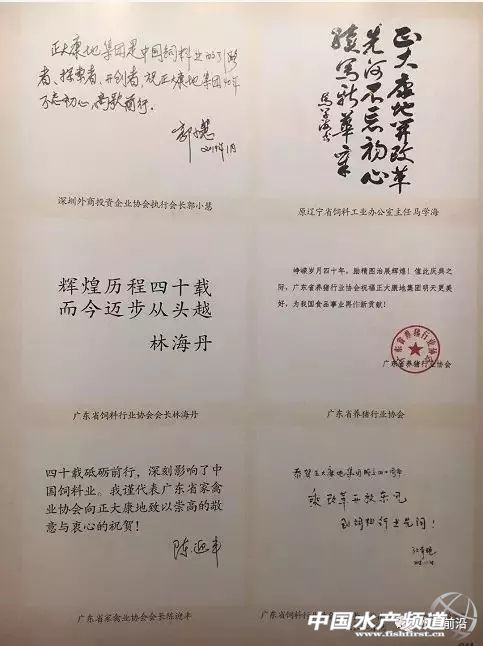 正大康地集团是中国饲料业的引路
者、探索者、开创者，祝正大康地集团40年
不忘初心，高歌前行。
郭小慧
2019年1月
深圳外商投资企业协会执行会长郭小慧
正大康地开改革
先河不忘初心
续写新华章
马学海书
原辽宁省饲料工业办公室主任马学海
辉煌历程四十载
而今迈步从头越
林海丹
广东省饲料行业协会会长林海丹
峥嵘岁月四十年，励精图治展辉煌！值此庆典之
际，广东省养猪行业协会祝福正大康地集团明天更美
好，为我国食品事业再作新贡献！
广东省养猪行业协会
广东省养猪行业协会
四十载砥砺前行，深刻影响了中
国饲料业。我谨代表广东省家禽
业协会向正大康地致以崇高的敬
意与衷心的祝贺！
陈迎丰
广东省家禽业协会会长陈迎丰
恭贺正大康地集团成立四十周年
乘改革开放东风
创饲料行业先河！
广东省饲料行业协会
中国水产频道
www.fishfirst.cn
前沿